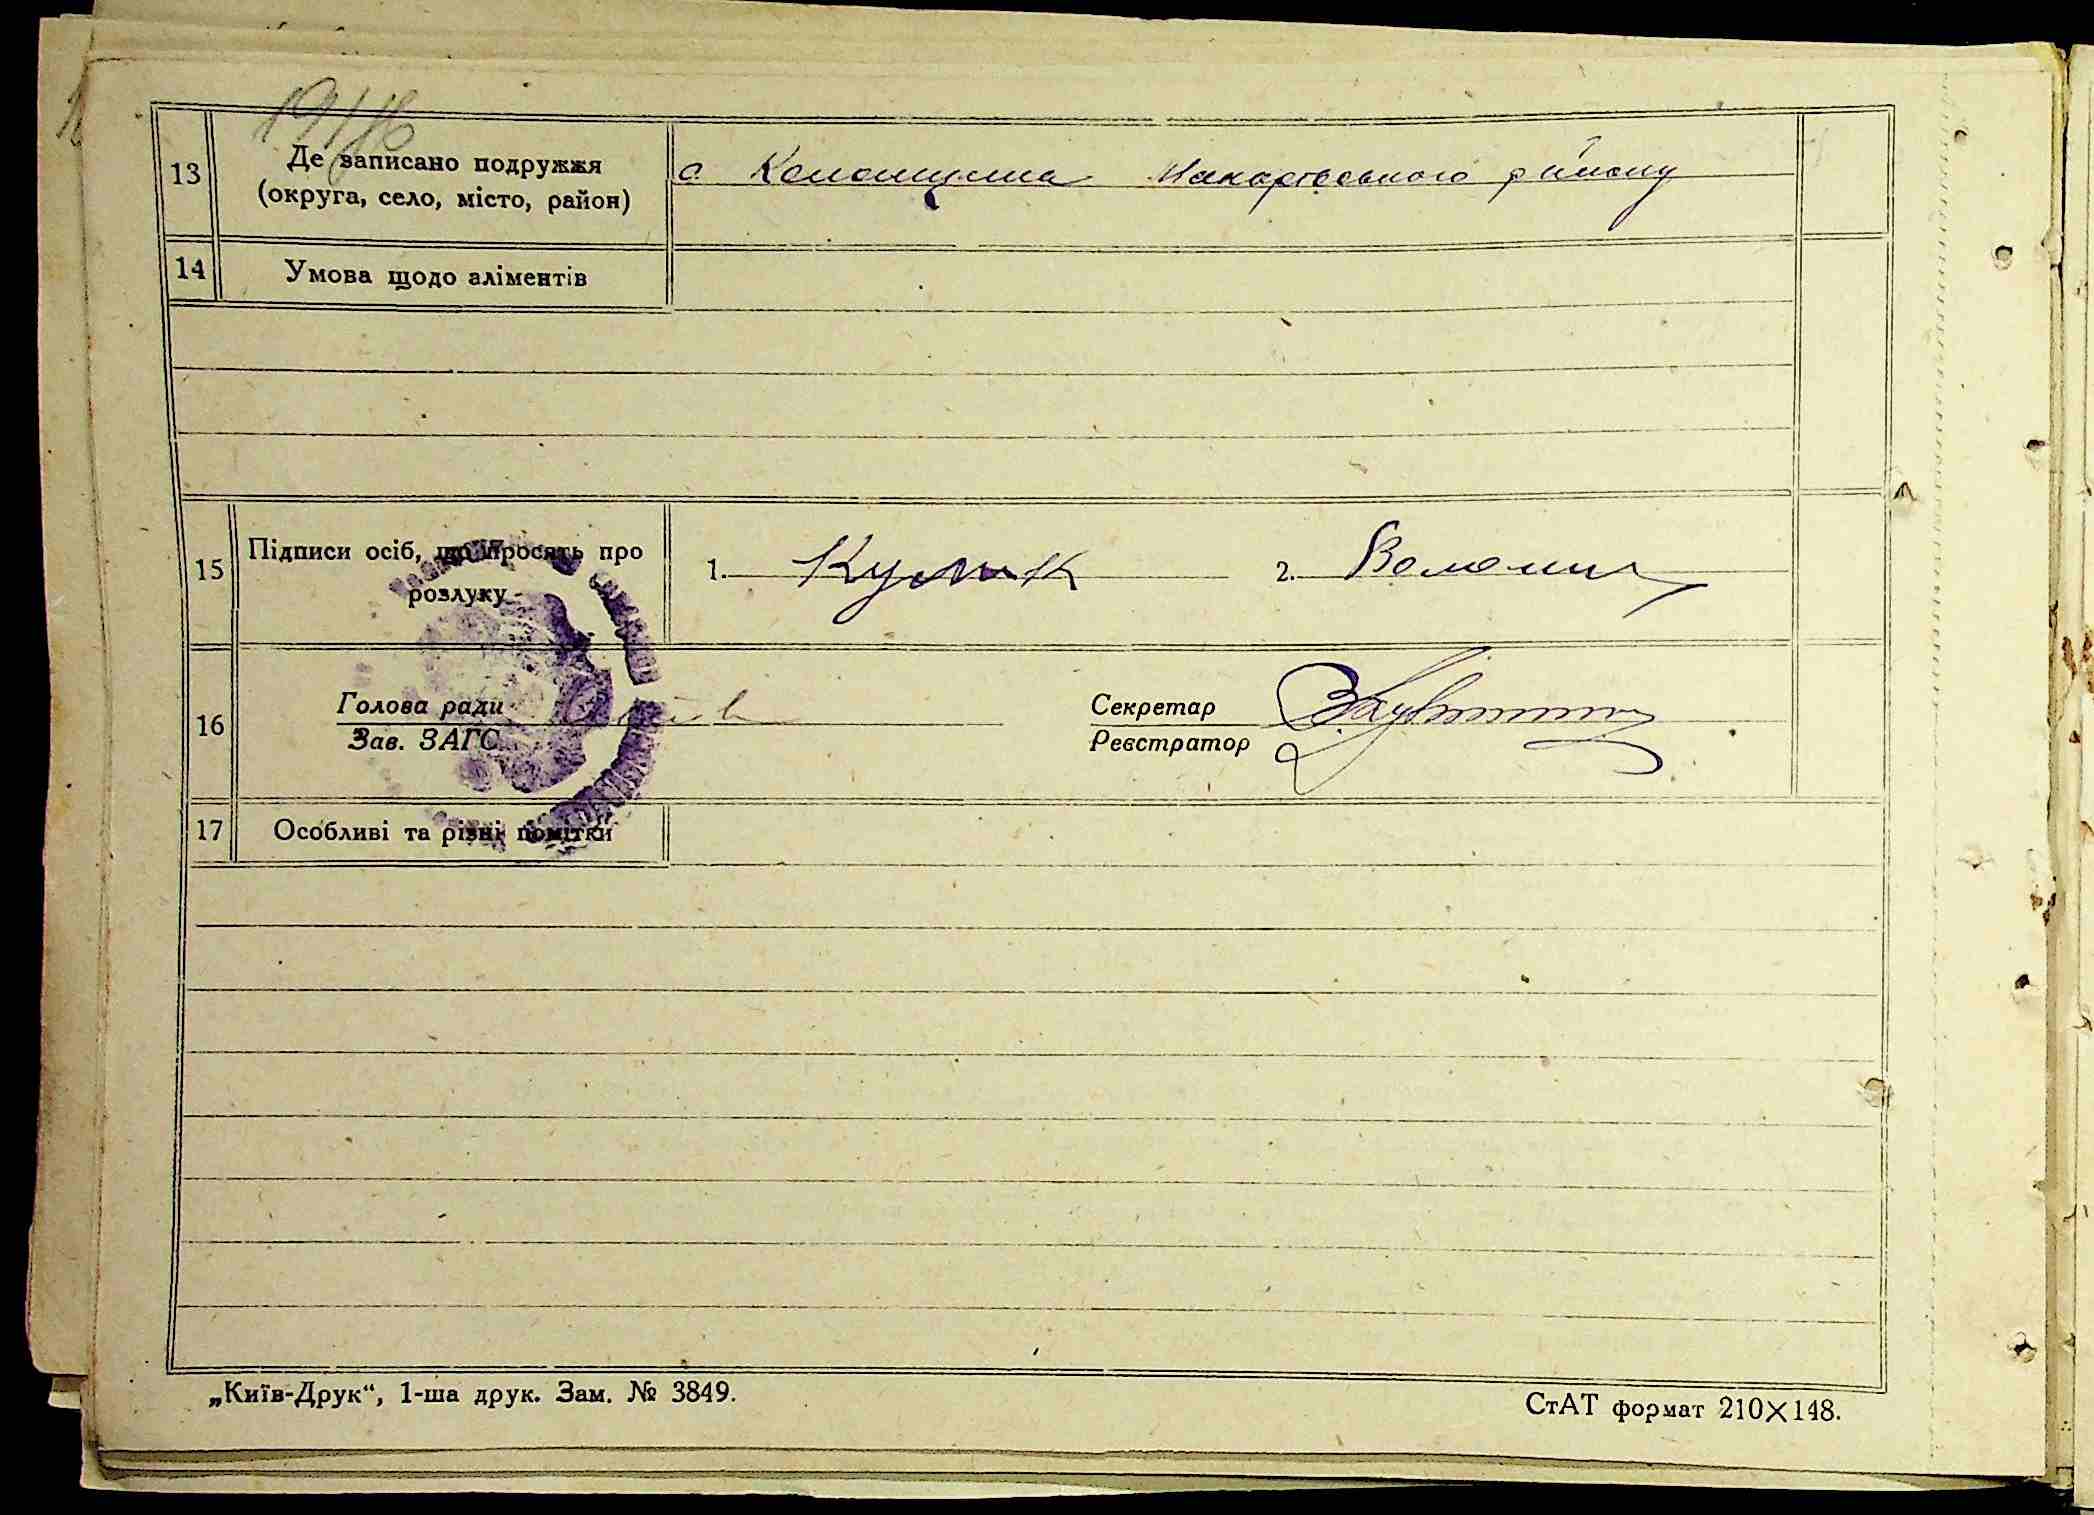 13
Де записано подружжя
(округа, село, місто, район)
с Колонщина Макарівського району
14
Умова щодо аліментів
15
Підписи осіб, що просять про
розлуку
1. Кулик
2.
16
Голова ради
Зав. ЗАГС
Секретар
Реєстратор
17
Особливі та різні помітки
„Київ-Друк“, 1-ша друк. Зам. № 3849.
СтАТ формат 210×148.